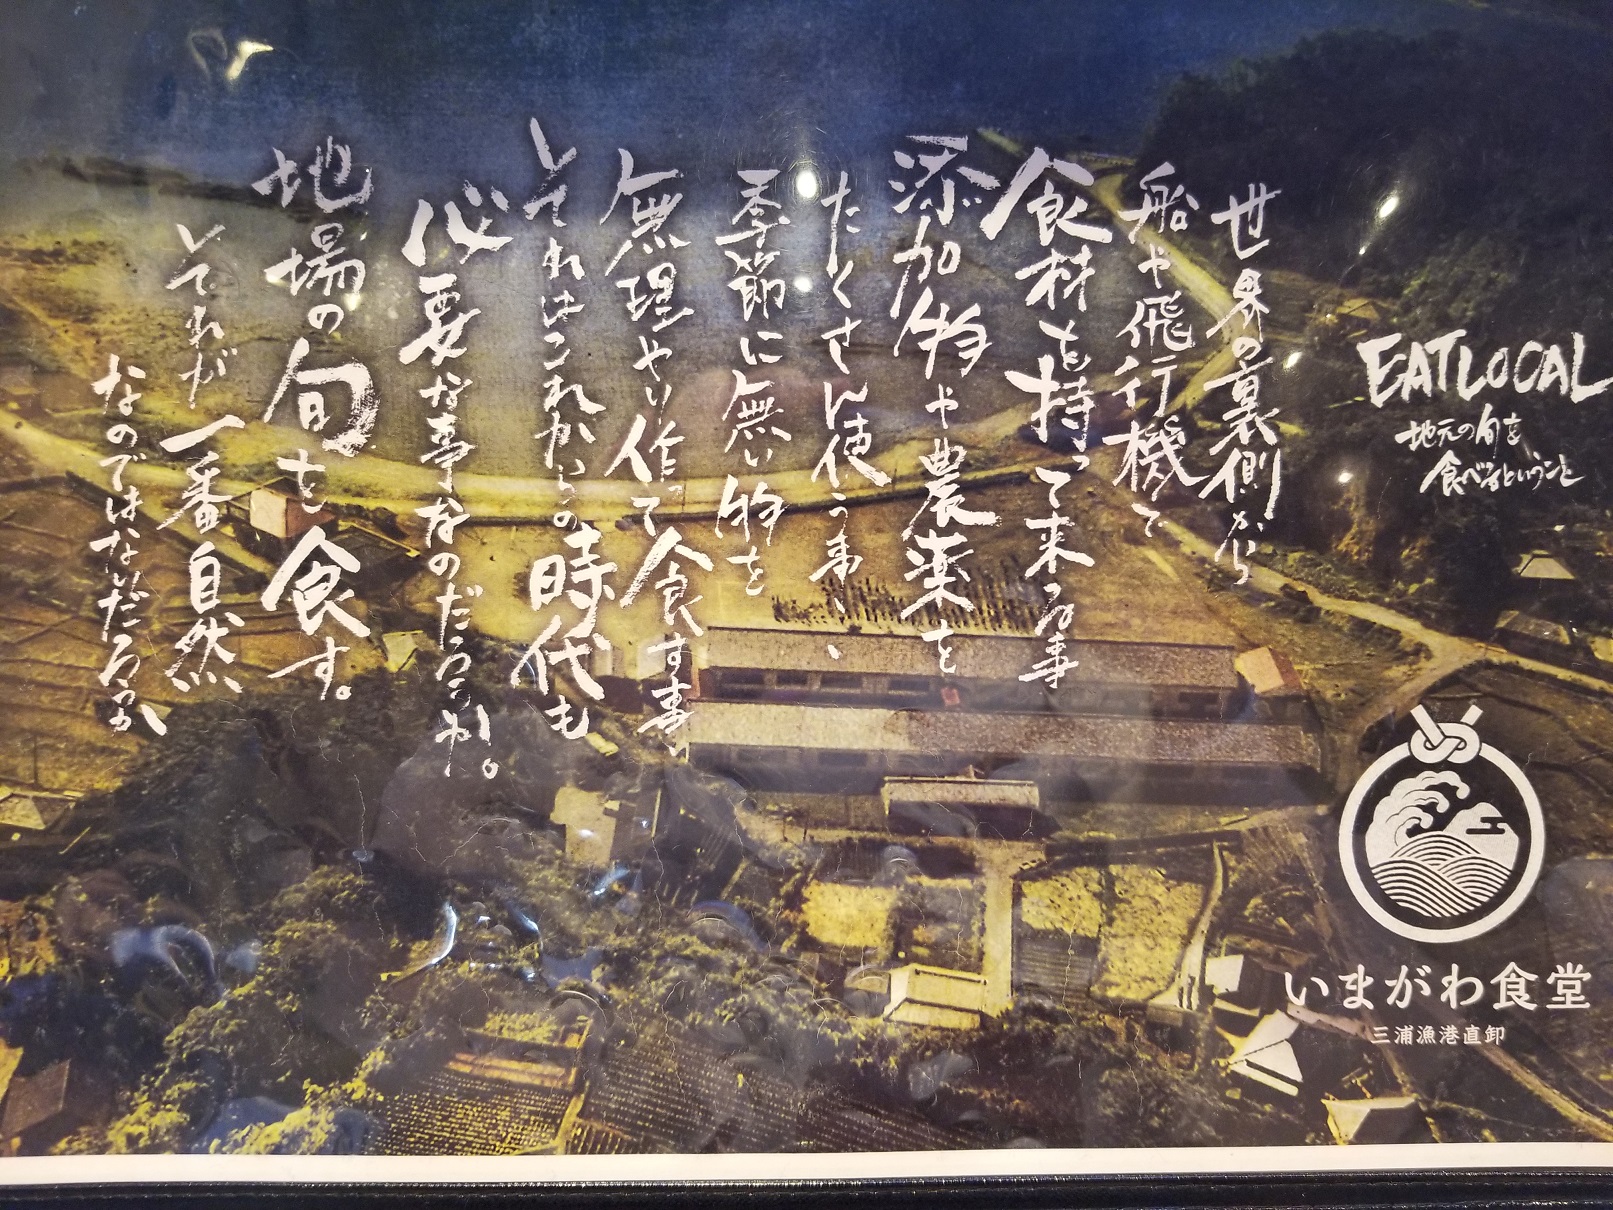 EAT LOCAL
地元の旬を
食べるということ
世界の裏側から
船や飛行機で
食材を持って来る事
添加物や農薬を
たくさん使う事、、
季節に無い物を
無理やり作って食す事、
それはこれからの時代も
必要な事なのだろうか。
地場の旬を食す。
それが一番自然
なのではないだろうか
いまがわ食堂
三浦漁港直卸